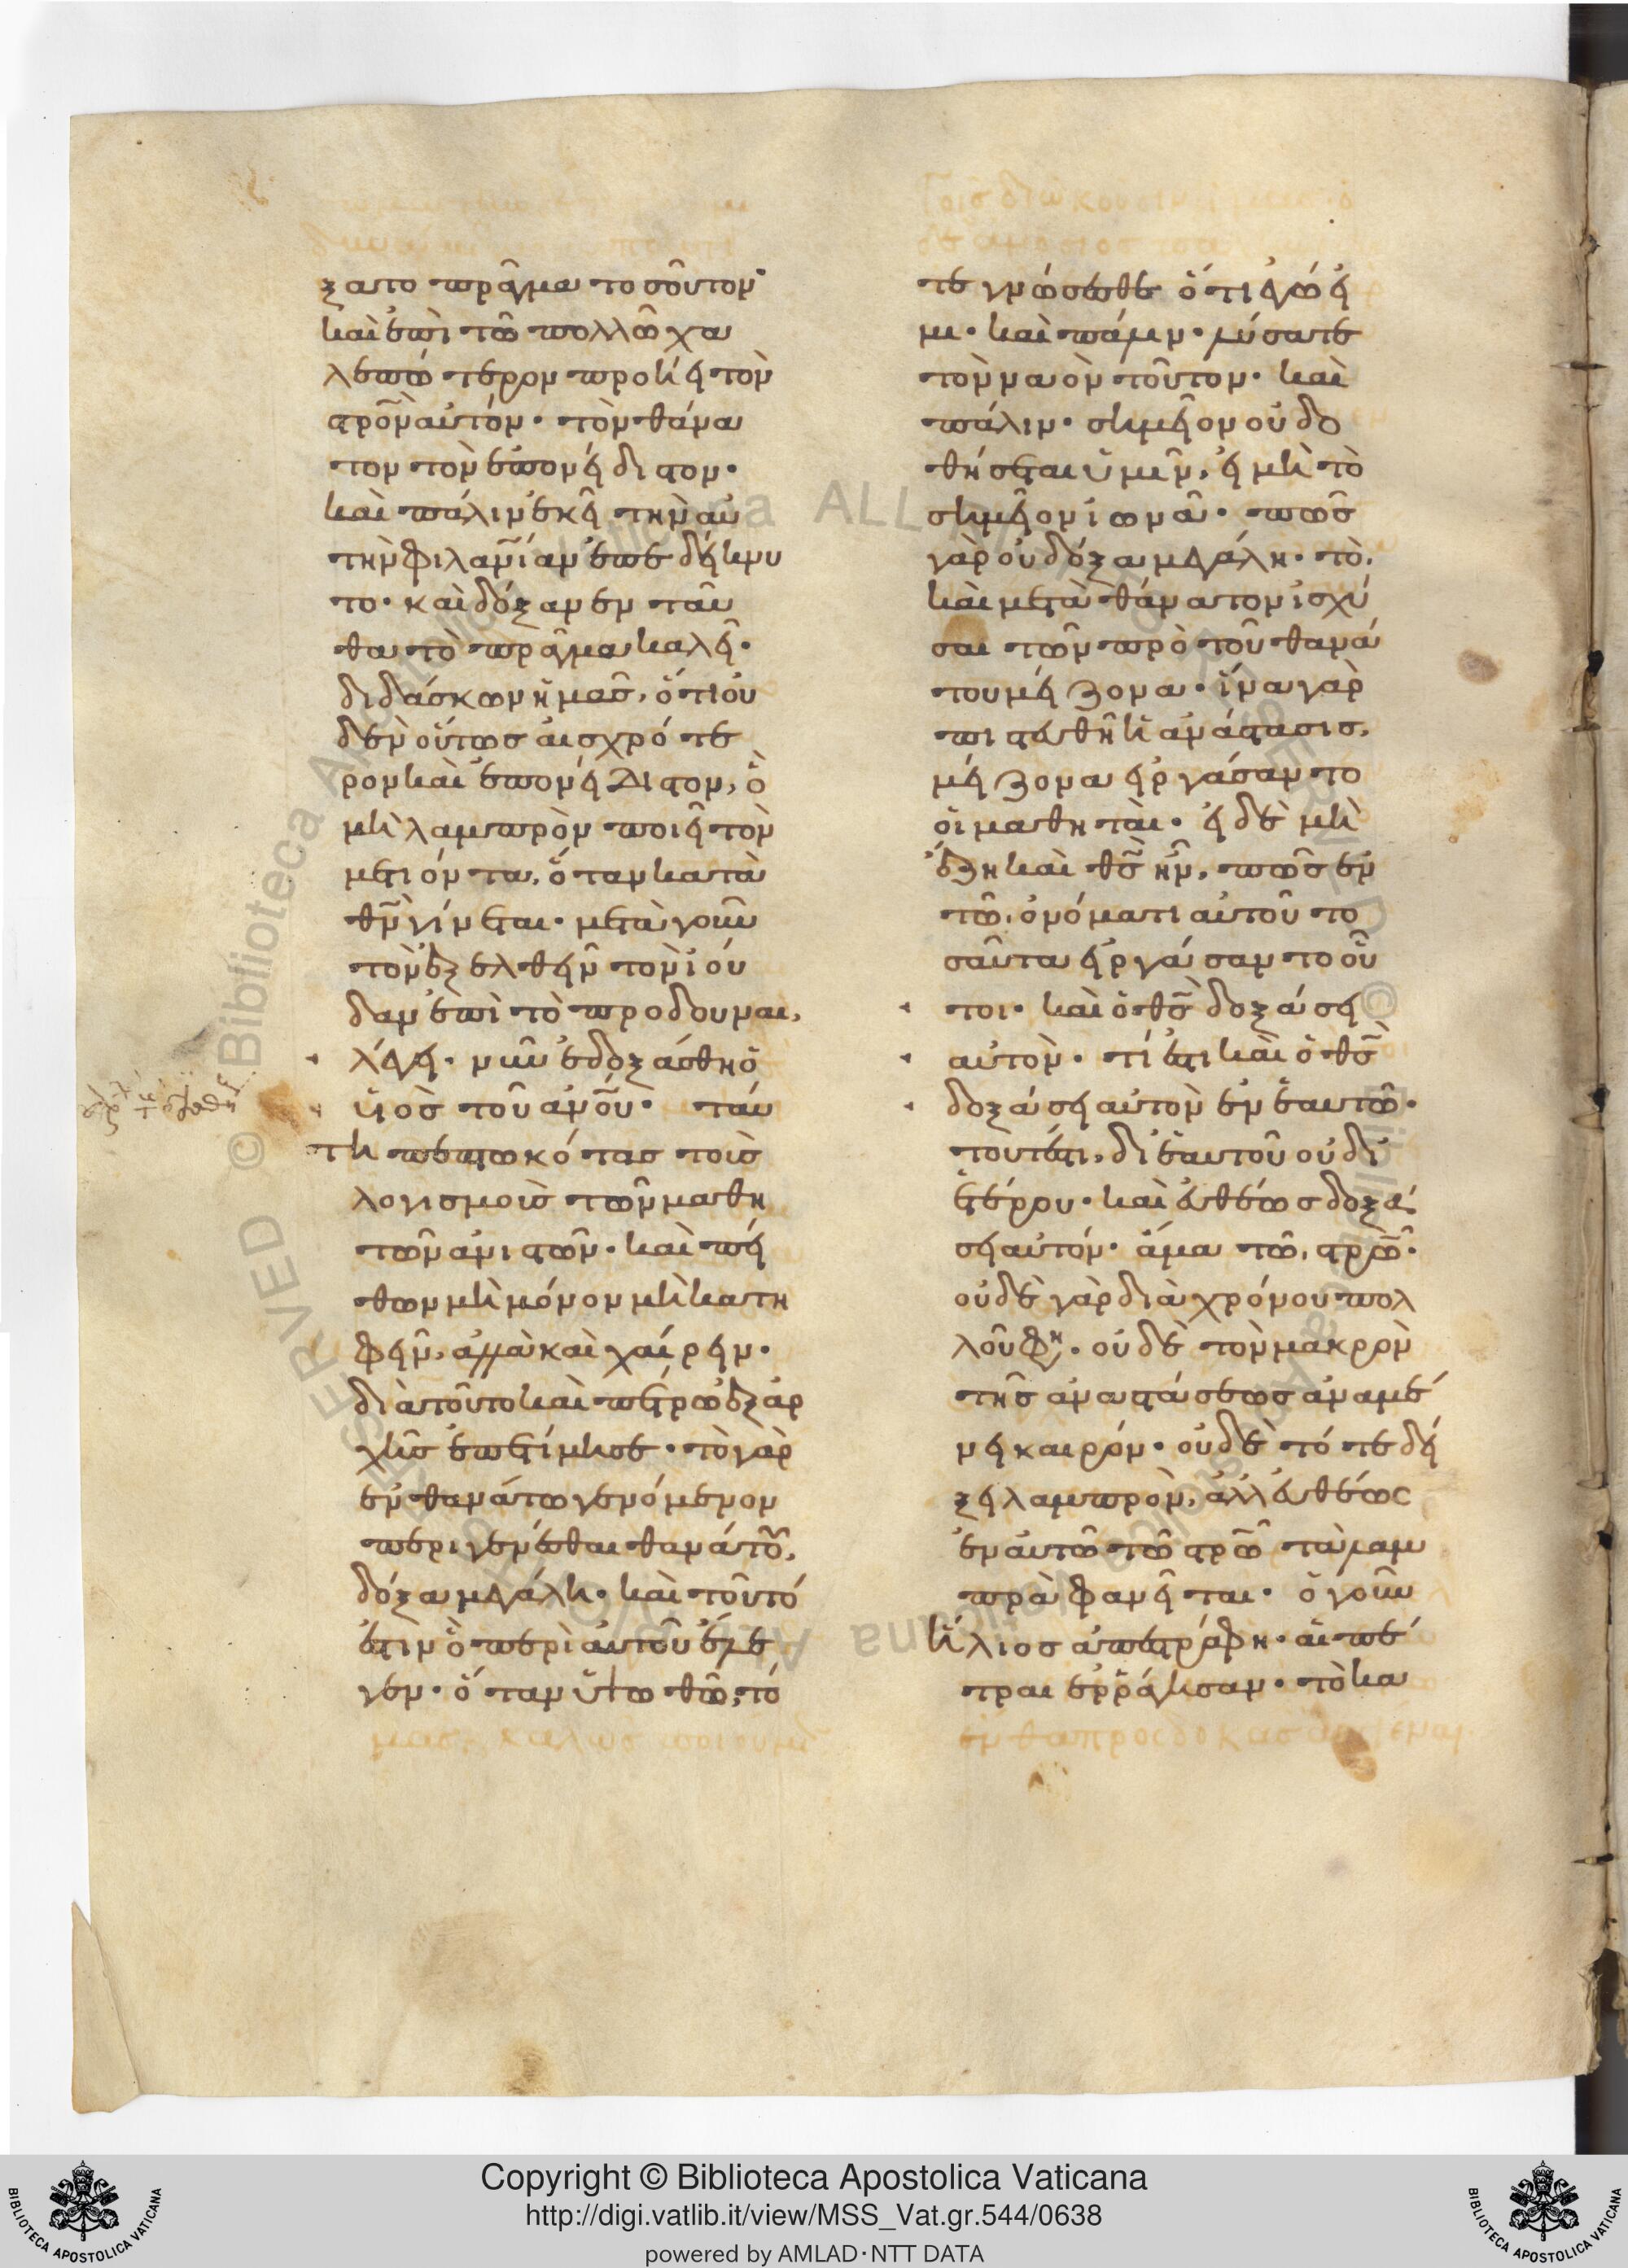 ξατο πρᾶγμα τοσοῦτον·
καὶ ἐπὶ τῶ πολλῶ χα
λεπώτερον προκίει τὸν
στρο̅ν αὐτόν· τὸν θάνα
τον τὸν ἐπονείδιστον·
καὶ πάλιν ἐκεῖ τὴν αὐ
τὴν φιλαν̅ίαν ἐπεδείκνυ
το· καὶ δόξαν ἐνταῦ
θα τὸ πρᾶγμα καλεῖ·
διδάσκων ἡμᾶς, ὅτι οὐ
δὲν οὕτως αἰσχρότε
ρον καὶ ἐπονείδιστον, ὃ
μὴ λαμπρὸν ποιεῖ τὸν
μετιόντα, ὅταν κατὰ
θν̅ γίνεται· μετὰ γοῦν
τὸ ἐξελθεῖν τὸν ἰού
δαν ἐπὶ τὸ προδοῦναι,
λέγει· νῦν ἐδοξάσθη ὁ
υἱὸς τοῦ ἀν̅ου̅· ταύ
τη πεπτωκότας τοὺς
λογισμοὺς τῶν μαθη
τῶν ἀνιστῶν· καὶ πεί
θων μὴ μόνον μὴ κατη
φεῖν, ἀλλὰ καὶ χαίρειν·
διὰ τοῦτο καὶ πέτρω ἐξ ἀρ
χῆς ἐπετίμησε· τὸ γὰρ
ἐν θανάτω γενόμενον
περιγενέσθαι θανάτου,
δόξα μεγάλη· καὶ τοῦτό
ἐστιν ὃ περὶ αὐτοῦ ἔλε
γεν· ὅταν ὑψωθῶ, τό
τε γνώσεσθε ὅτι ἐγώ εἰ
μι· καὶ πάλιν· λύσατε
τὸν ναὸν τοῦτον· καὶ
πάλιν· σημεῖον οὐ δο
θήσεται ὑμῖν, εἰ μὴ τὸ
σημεῖον ἰωνᾶ· πῶς
γὰρ οὐ δόξα μεγάλη· τὸ,
καὶ μετὰ θάνατον ἰσχύ
σαι τῶν πρὸ τοῦ θανά
του μείζονα· ἵνα γὰρ
πιστευθῆ ἡ ἀνάστασις,
μείζονα εἰργάσαντο
οἱ μαθηταί· εἰ δὲ μὴ
ἔζη καὶ θς̅ ἦν, πῶς ἐν
τῶ, ὀνόματι αὐτοῦ το
σαῦτα εἰργάσαντο οὗ
τοι· καὶ ὁ θς̅ δοξάσει
αὐτὸν· τί ἐστι καὶ ὁ θς̅
δοξάσει αὐτὸν ἐν ἑαυτῶ·
τουτέστι, δι ἑαυτοῦ οὐ δι
ἑτέρου· καὶ εὐθέως δοξά
σει αὐτόν· ἅμα τῶ, στρω̅·
οὐδὲ γὰρ διὰ χρόνου πολ
λοῦ φη· οὐδὲ τὸν μακρὸν
τῆς ἀναστάσεως ἀναμέ
νει καιρόν· οὐδὲ τότε δεί
ξει λαμπρὸν, ἀλλ εὐθέως
ἐν αὐτῶ τῶ στρω̅ τὰ λαμ
πρὰ φανεῖται· ὁ γοῦν
ἥλιος ἀπεστράφη· αἱ πέ
τραι ἐρράγησαν· τὸ κα